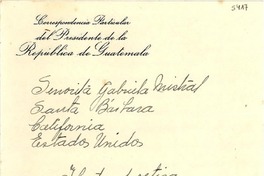 5417
Correspondencia Particular
del Presidente de la
República de Guatemala
Señorita Gabriela Mistral
Santa Bárbara
California
Estados Unidos